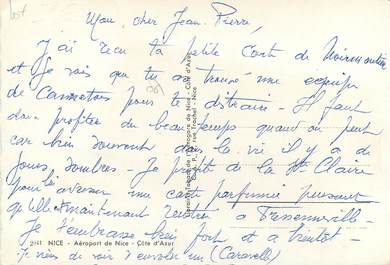 Mon cher Jean Pierre,
J'ai reçu ta petite carte de Noirmoutier
et je vois que tu as trouvé une équipe
de Camarades pour te distraire - Il faut
profiter du beau temps quand on peut
car bien souvent dans la vie il y a de
jours sombres - Je profite de la Ste Claire
pour envoyer une carte parfumée
qu'elle est maintenant rentrée à
Je t'embrasse bien fort et à bientôt -
2141 NICE - Aéroport de Nice - Côte d'Azur
Je viens de voir s'envoler un (Caravelle)